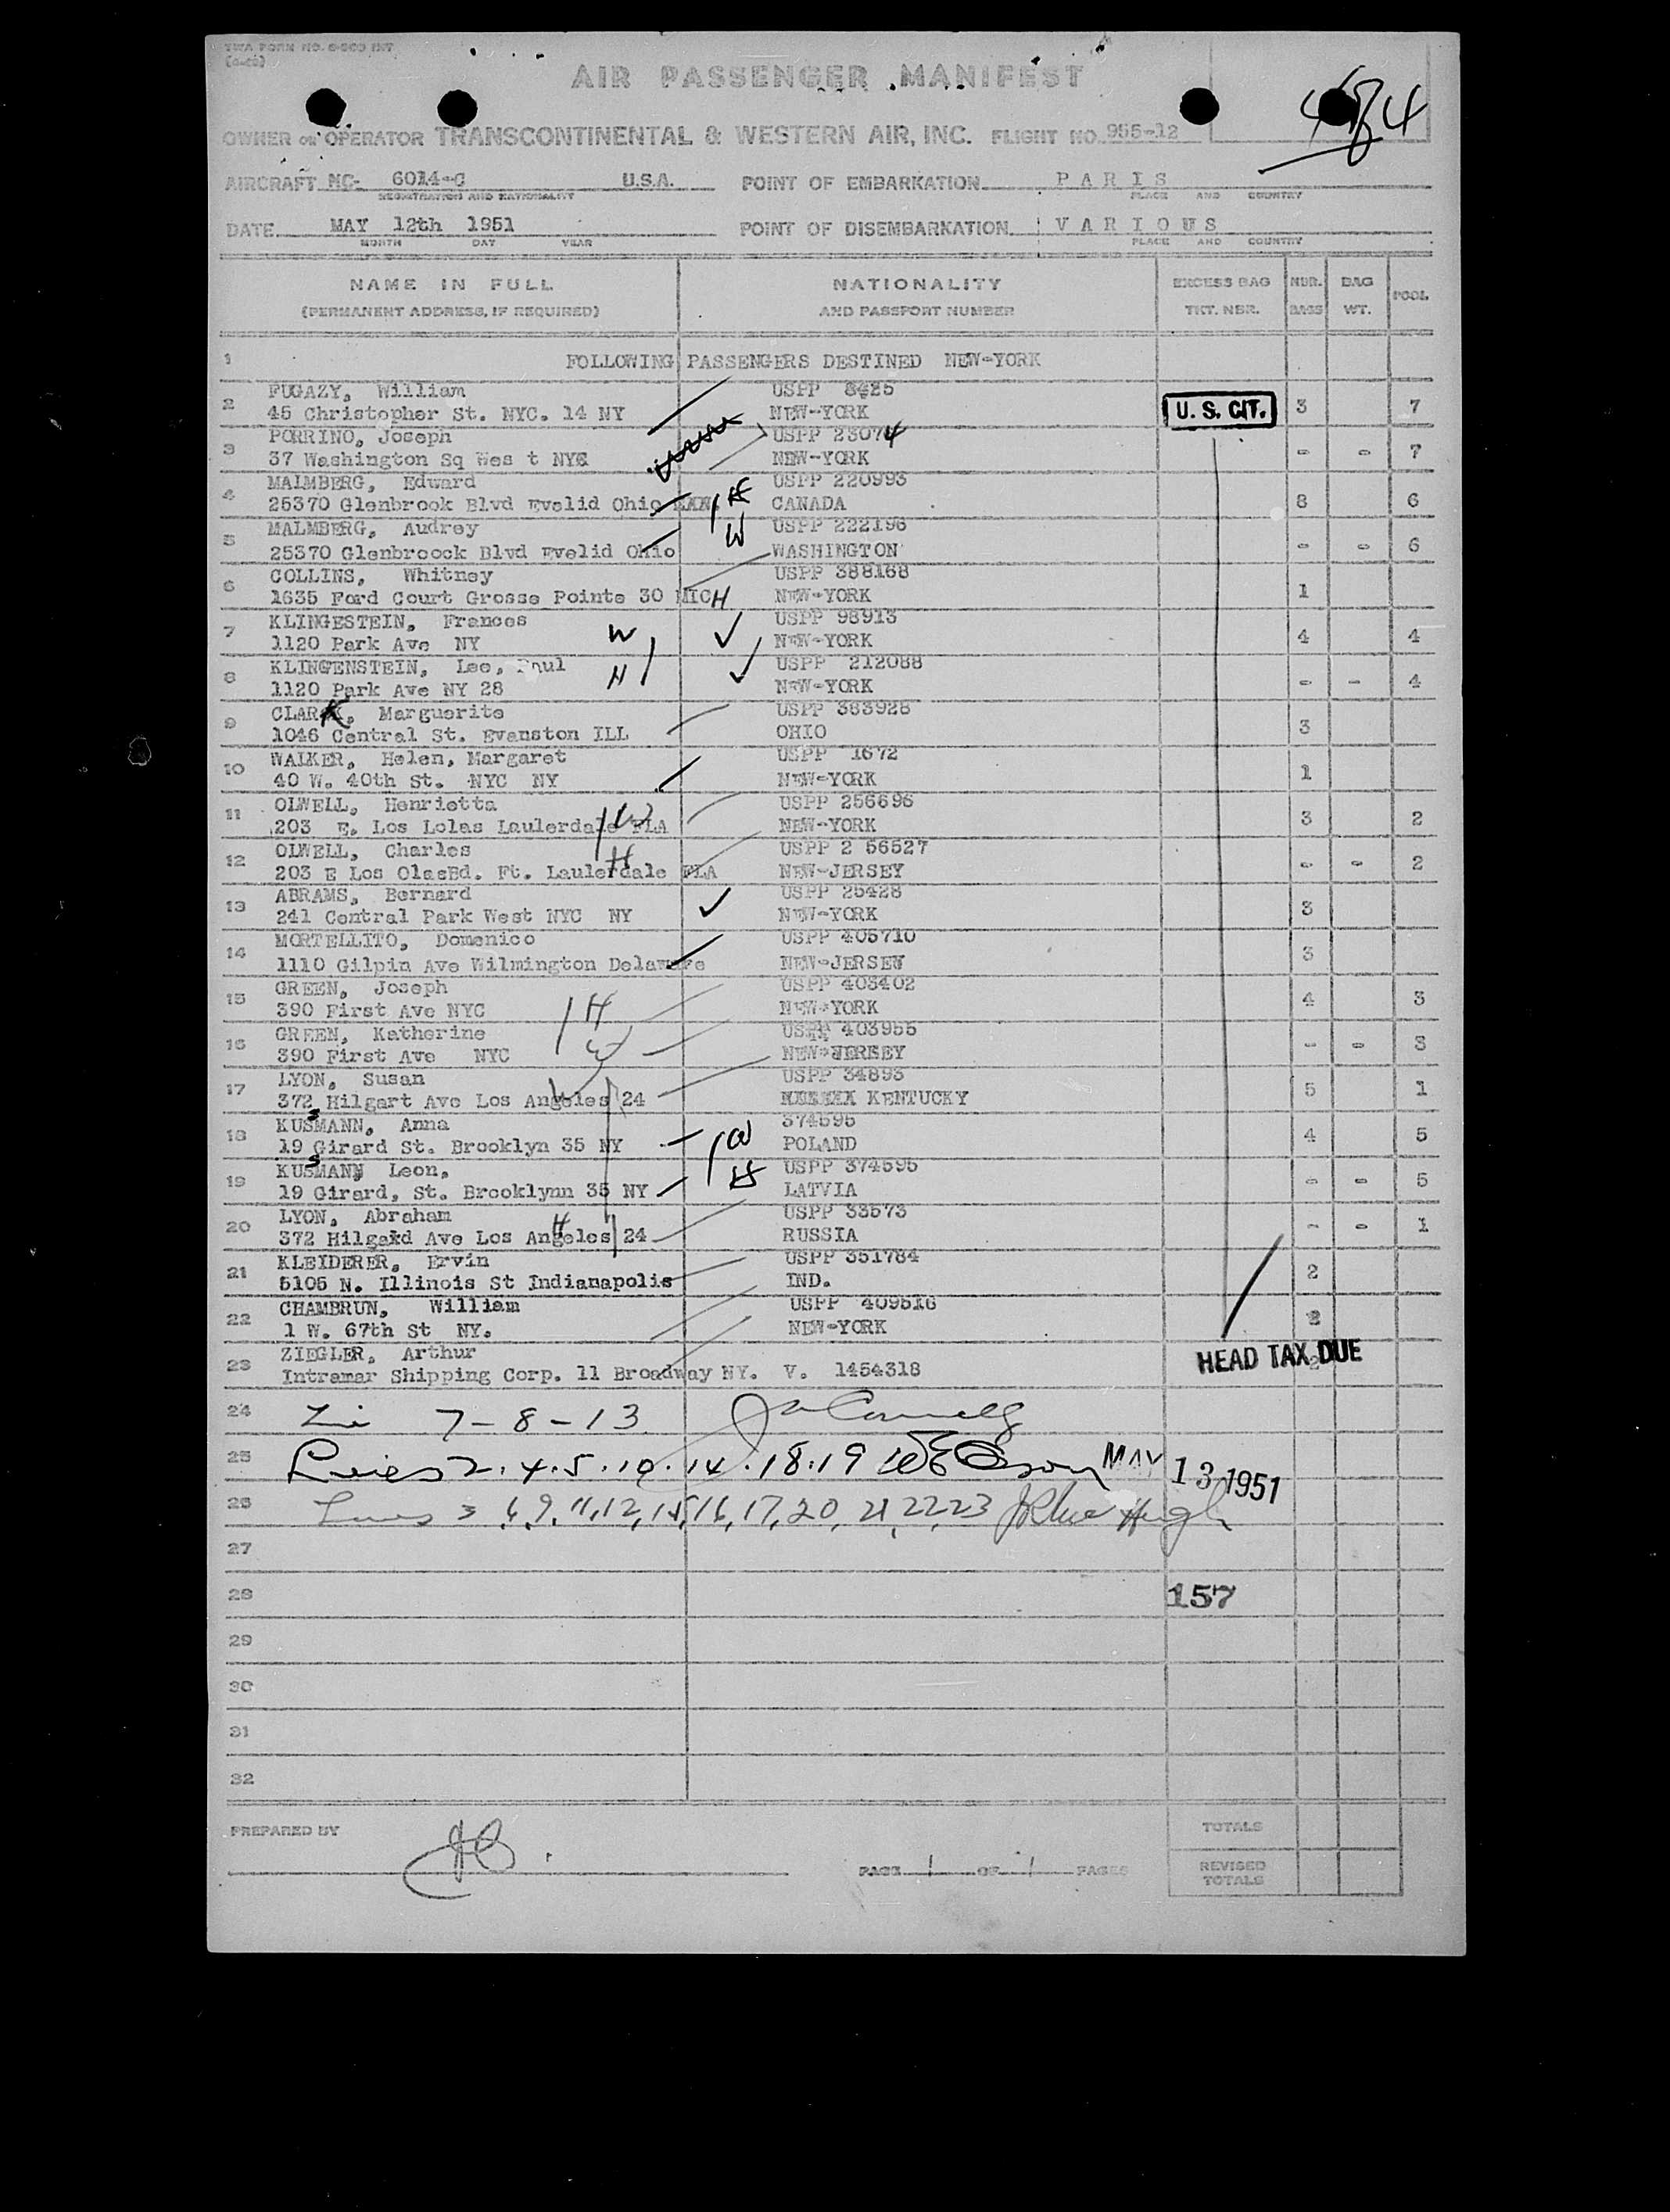 TWA FORM NO.
AIR PASSENGER MANIFEST
OWNER OR OPERATOR TRANSCONTINENTAL & WESTERN AIR, INC. FLIGHT NO. 955-12
AIRCRAFT NC- 6014-C U.S.A. POINT OF EMBARKATION PARIS
REGISTRATION AND NATIONALITY PLACE AND COUNTRY
DATE MAY 12th 1951 POINT OF DISEMBARKATION VARIOUS
MONTH DAY YEAR PLACE AND COUNTRY
NAME IN FULL NATIONALITY EXCESS BAG NBR. BAG POOL
(PERMANENT ADDRESS, IF REQUIRED) AND PASSPORT NUMBER TKT. NBR. BAGS WT.
1 FOLLOWING PASSENGERS DESTINED NEW-YORK
FUGAZY, William USPP 8425
2 45 Christopher St. NYC. 14 NY NEW-YORK U. S. CIT. 3 7
PORRINO, Joseph USPP 23074
3 37 Washington Sq Wes t NYC NEW-YORK - - 7
MALMBERG, Edward USPP 220993
4 25370 Glenbrook Blvd Evelid Ohio H CANADA 8 6
MALMBERG, Audrey W USPP 222196
5 25370 Glenbroock Blvd Evelid Ohio WASHINGTON - - 6
COLLINS, Whitney USPP 388168
6 1635 Ford Court Grosse Pointe 30 MICH NEW-YORK 1
KLINGESTEIN, Frances USPP 98913
7 1120 Park Ave NY W NEW-YORK 4 4
KLINGENSTEIN, Lee, Paul USPP 212088
8 1120 Park Ave NY 28 H NEW-YORK - - 4
CLARK, Marguerite USPP 383928
9 1046 Central St. Evanston ILL OHIO 3
WALKER, Helen, Margaret USPP 1672
10 40 W. 40th St. NYC NY NEW-YORK 1
OLWELL, Henrietta W USPP 256696
11 203 E. Los Lolas Laulerdale FLA NEW-YORK 3 2
OLWELL, Charles H USPP 2 56527
12 203 E Los OlasBd. Ft. Laulerdale FLA NEW-JERSEY - - 2
ABRAMS, Bernard USPP 25428
13 241 Central Park West NYC NY NEW-YORK 3
MORTELLITO, Domenico USPP 405710
14 1110 Gilpin Ave Wilmington Delaware NEW-JERSEY 3
GREEN, Joseph USPP 403402
15 390 First Ave NYC H NEW-YORK 4 3
GREEN, Katherine USPP 403955
16 390 First Ave NYC W NEW-JERSEY - - 3
LYON, Susan USPP 34893
17 372 Hilgart Ave Los Angeles 24 W KENTUCKY 5 1
KUSSMANN, Anna 374595
18 19 Girard St. Brooklyn 35 NY W POLAND 4 5
KUSSMANN Leon, USPP 374595
19 19 Girard, St. Brooklynn 35 NY H LATVIA - - 5
LYON, Abraham USPP 33573
20 372 Hilgard Ave Los Angeles 24 H RUSSIA - - 1
KLEIDERER, Ervin USPP 351784
21 5105 N. Illinois St Indianapolis IND. 2
CHAMBRUN, William USPP 409516
22 1 W. 67th St NY. NEW-YORK 2
ZIEGLER, Arthur
23 Intramar Shipping Corp. 11 Broadway NY. V. 1454318 HEAD TAX DUE
24 7-8-13
25 Lines 2.4.5.10.14.18.19 MAY 13 1951
26 Lines 3 6, 9, 11, 12, 15, 16, 17, 20, 21, 22, 23
27
28 157
29
30
31
32
PREPARED BY TOTALS
PAGE 1 OF 1 PAGES REVISED TOTALS